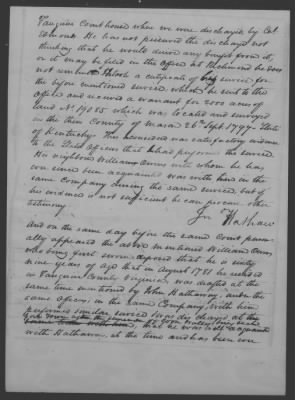 Fauquier Courthouse where we were discharged by Col.
Edmonds He has not preserved the discharge not
thinking that he would derive any benefit from it,
or it may be filed in the Office at Richmond he does
not remember I took a certificate of my service for
the before mentioned service which he sent to the
Office and received a warrant for 2000 acres of
land No. 19085 which was located and surveyed
in the then County of Mason 26th Sept. 1797. State
of Kentucky. This he considered was satisfactory evidence
to the Field officers that I had performed the service
His neighbour William Owens with whom he has
ever since been acquainted was with him in the
same company during the same service, but if
his evidence is not sufficient he can procure other
testimony
Jno Hathaw
And on the same day before the same Court person-
ally appeared the above mentioned William Owens
who being first sworn deposed that he is sixty
nine years of age that in August 1781 he resided
in Fauquier County Virginia was drafted at the
same time mentioned by John Hathaway, under the
same officers, in the same Company, with him
performed similar service & was discharged at the
same time with him, that he was well acquainted
with Hathaway, at the time and has been ever